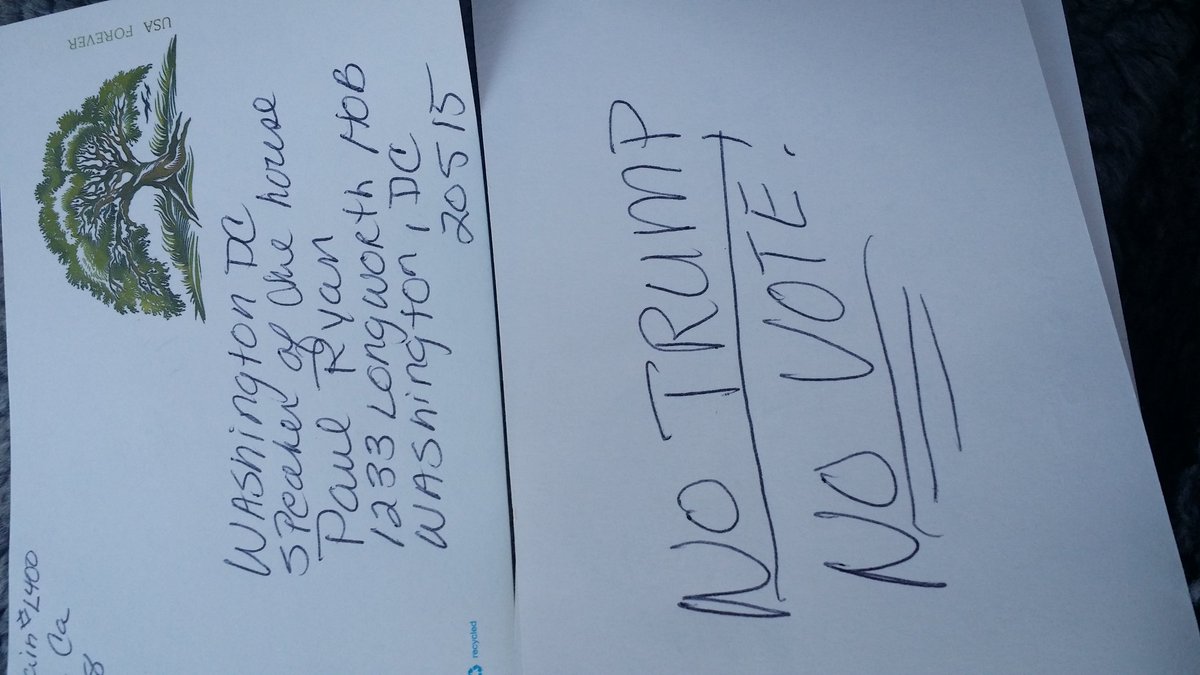 USA FOREVER
#2400
Ca
WASHINGTON DC
SPeaker of the house
Paul Ryan
1233 Longworth HOB
WASHington, DC
20515
recycled
NO TRUMP
NO VOTE.